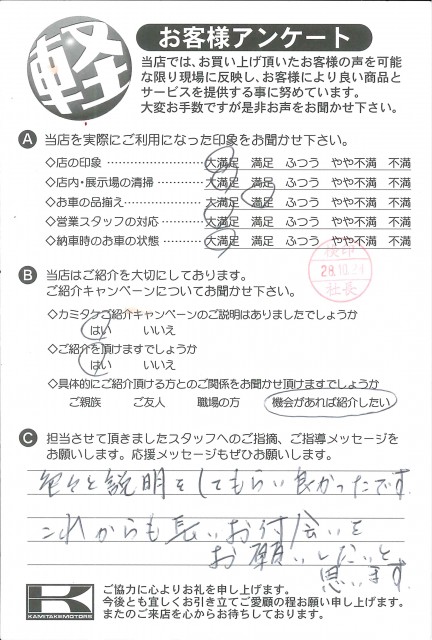 軽
お客様アンケート
当店では、お買い上げ頂いたお客様の声を可能
な限り現場に反映し、お客様により良い商品と
サービスを提供する事に努めています。
大変お手数ですが是非お声をお聞かせ下さい。
A 当店を実際にご利用になった印象をお聞かせ下さい。
◇店の印象 ‥‥‥‥‥‥‥‥ 大満足 満足 ふつう やや不満 不満
◇店内・展示場の清掃‥‥‥‥ 大満足 満足 ふつう やや不満 不満
◇お車の品揃え‥‥‥‥‥‥‥ 大満足 満足 ふつう やや不満 不満
◇営業スタッフの対応‥‥‥‥ 大満足 満足 ふつう やや不満 不満
◇納車時のお車の状態‥‥‥‥ 大満足 満足 ふつう やや不満 不満
検印
28.10.
社長
B 当店はご紹介を大切にしております。
ご紹介キャンペーンについてお聞かせ下さい。
◇カミタケご紹介キャンペーンのご説明はありましたでしょうか
はい いいえ
◇ご紹介を頂けますでしょうか
はい いいえ
◇具体的にご紹介頂ける方とのご関係をお聞かせ頂けますでしょうか
ご親族 ご友人 職場の方 機会があれば紹介したい
C 担当させて頂きましたスタッフへのご指摘、ご指導メッセージを
お願いします。応援メッセージもぜひお願いします。
色々と説明をしてもらい良かったです。
これからも長いお付会いを
お願いしたいと
思います
K
KAMITAKEMOTORS
ご協力に心よりお礼を申し上げます。
今後とも宜しくお引き立てご愛顧の程お願い申し上げます。
またのご来店を心からお待ちしております。